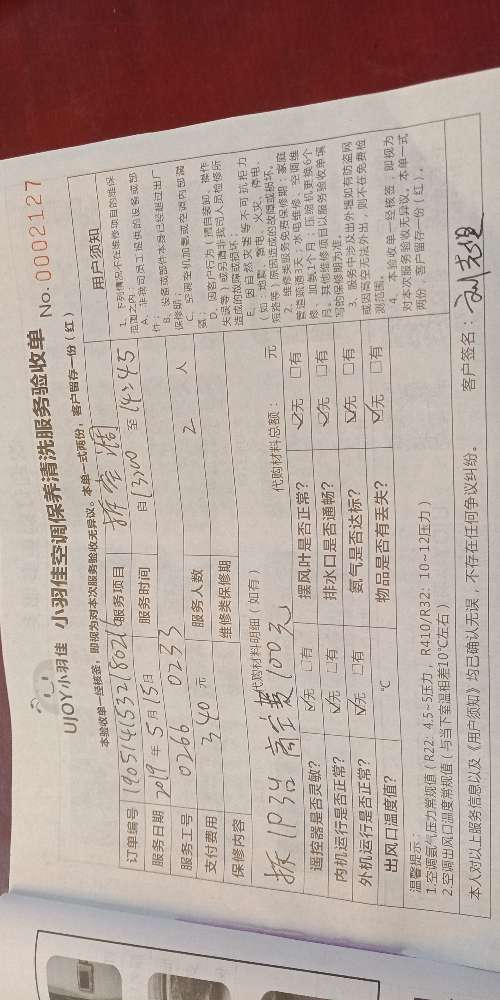 UJOY小羽佳 小羽佳空调保养清洗服务验收单 No.0002127
本验收单一经核签，即视为对本次服务验收无异议。本单一式两份，客户留存一份（红）
订单编号 服务项目 拆空调
服务日期 2019年5月15日 服务时间 自13:00至14:45
服务工号 0266 0233 服务人数 2 人
支付费用 340 元 维修类保修期
保修内容
代购材料明细（如有） 代购材料总额： 元
拆1P3台 高空费100元
遥控器是否灵敏？ ☑无 □有 摆风叶是否正常？ ☑无 □有
内机运行是否正常？ ☑无 □有 排水口是否通畅？ ☑无 □有
外机运行是否正常？ ☑无 □有 氨气是否达标？ ☑无 □有
出风口温度值？ ℃ 物品是否有丢失？ ☑无 □有
用户须知
1、下列情况不在维修项目的维保
范围之内：
A、非我司员工提供的设备或部
件；
B、设备或部件本身已经超过出厂
保修期；
C、空调室机加氨或空调内部漏
氨；
D、因客户行为（擅自装卸、操作
失误等）或另遣非我司人员检修所
造成的故障或损坏；
E、因自然灾害等不可抗拒力
（如：地震、雷电、火灾、停电、
短路等）原因造成的故障或损坏。
2、维修类服务免费保修期：家庭
管道疏通3天；水电维修、空调维
修、加氨1个月；压缩机更换6个
月。其他维修项目以服务验收单填
写的保修期为准。
3、服务中涉及出外墙如有防盗网
或因高空无法外出，则不在免费检
测范围。
4、本验收单一经核签，即视为
对本次服务验收无异议。本单一式
两份，客户留存一份（红）。
温馨提示：
1.空调氨气压力常规值（R22：4.5~5压力，R410/R32：10~12压力）
2.空调出风口温度常规值（与当下室温相差10℃左右）
本人对以上服务信息以及《用户须知》均已确认无误，不存在任何争议纠纷。 客户签名：